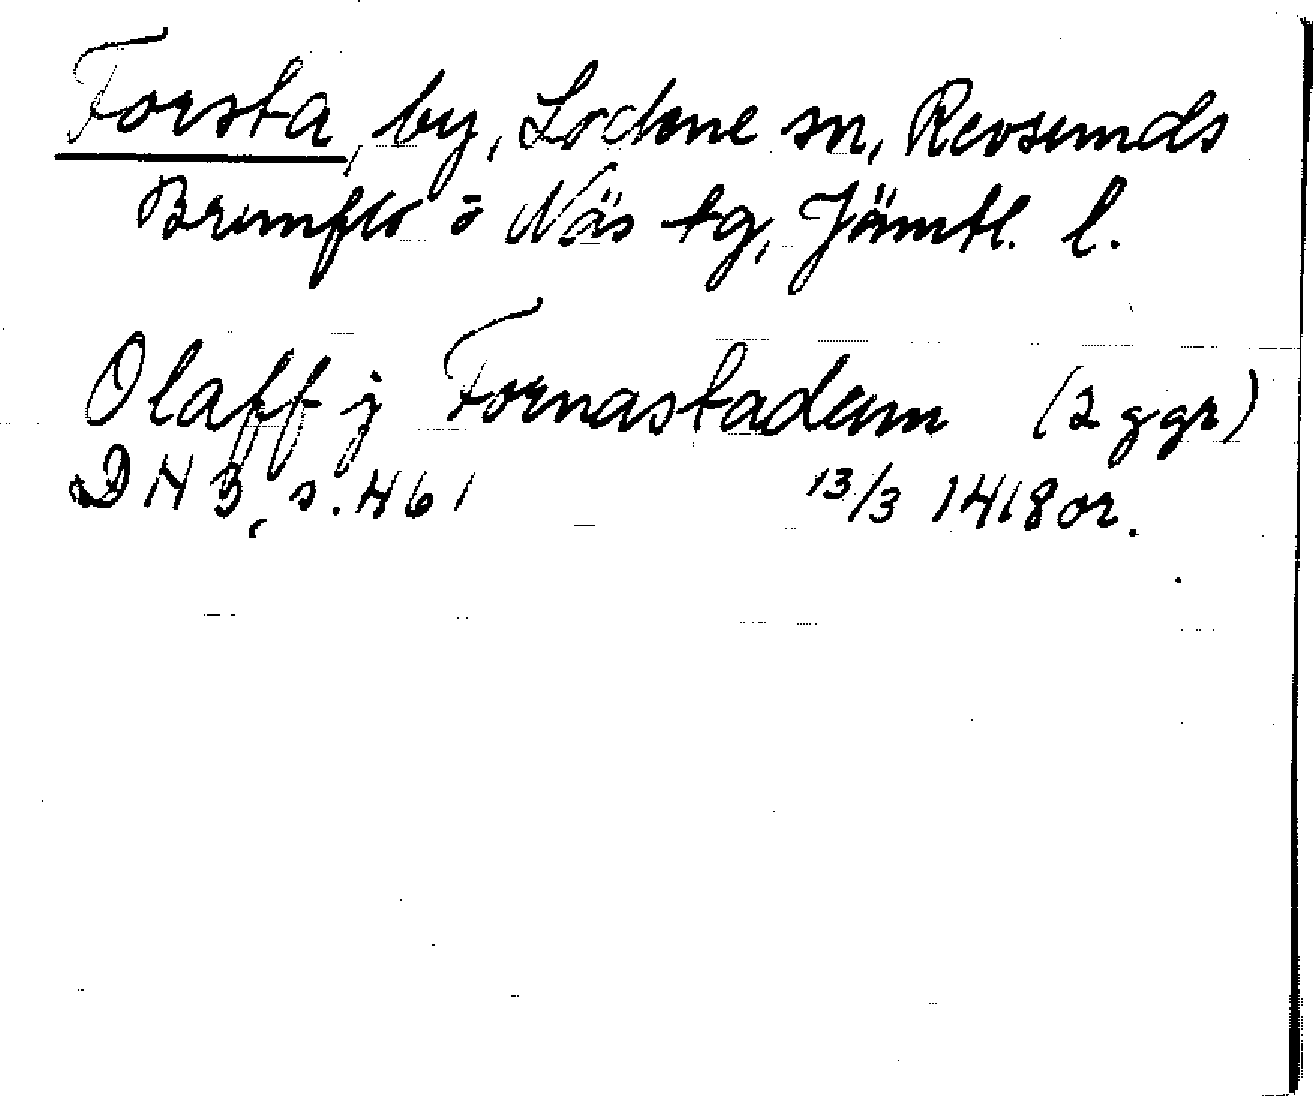 Forsta, by, Lockne sn, Revsunds
Brunflo o Näs tg, Jämtl. l.
Olaff j Fornastadum (2 ggr)
DN 3, s. 461 13/3 1418 or.